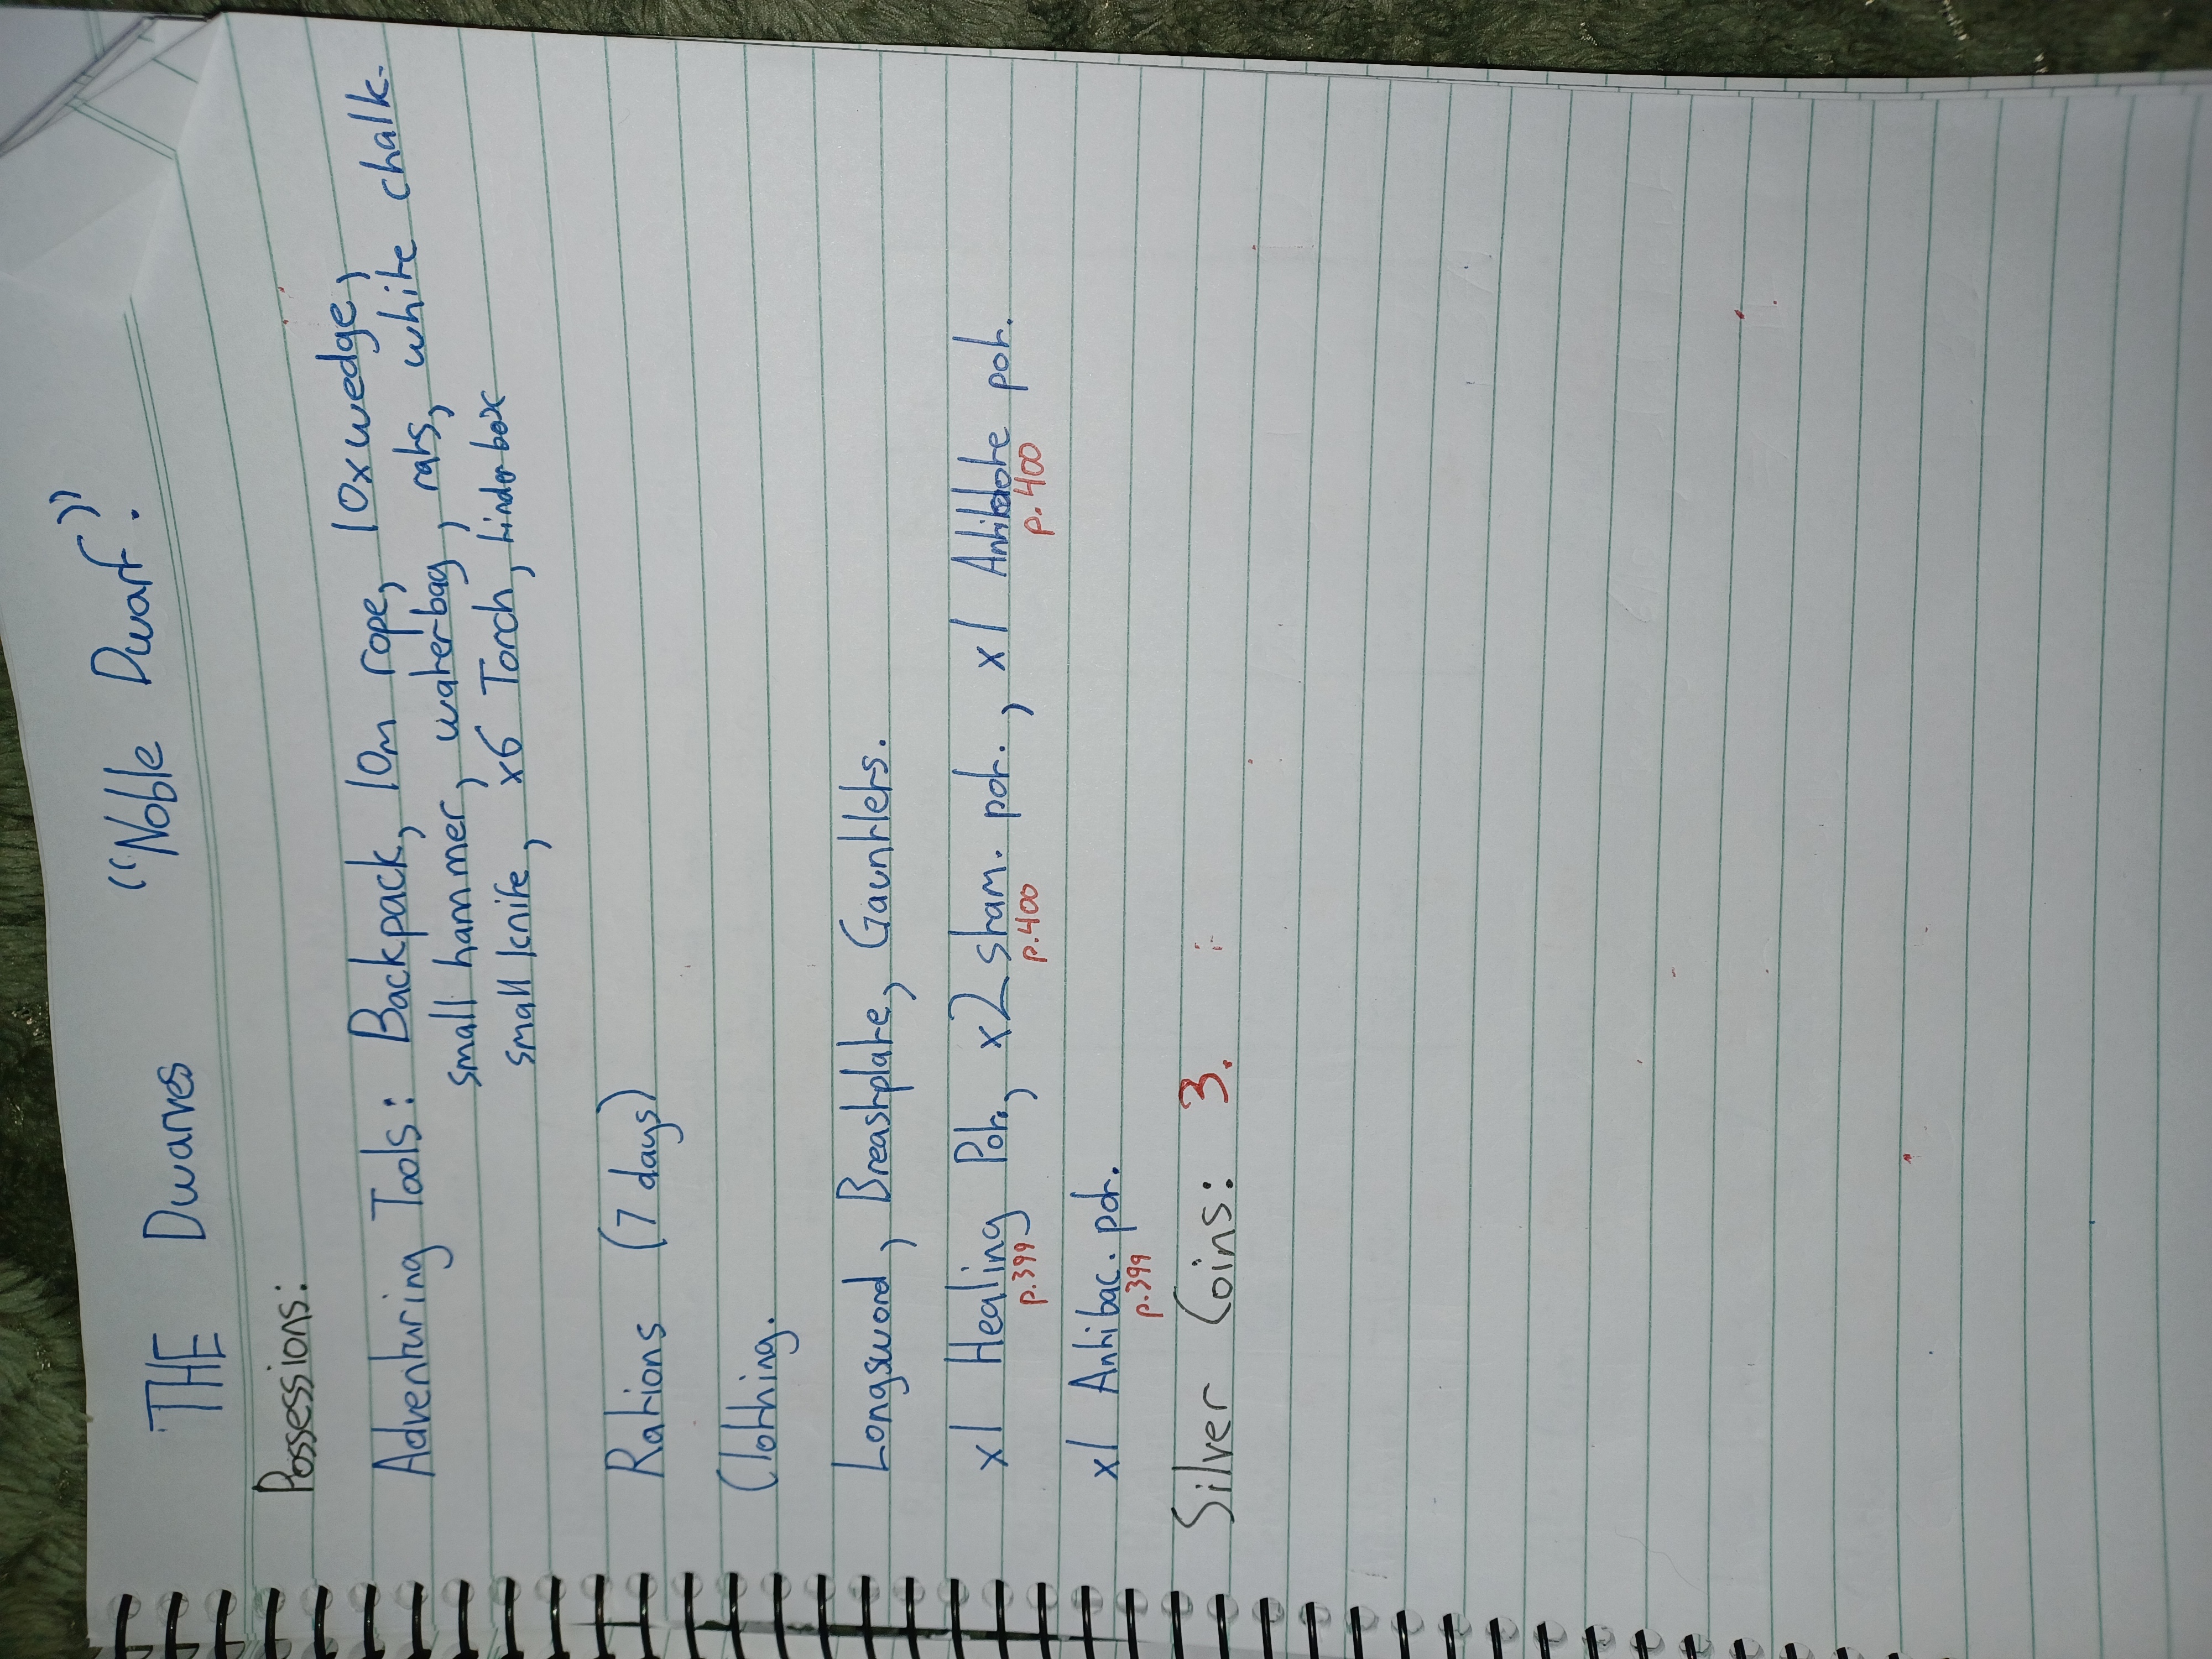 THE Dwarves "Noble Dwarf".
Possessions:
Adventuring Tools: Backpack, 10m rope, 10x wedge,
small hammer, waterbag, rats, white chalk.
small knife, x6 Torch, tinderbox
Rations (7 days)
Clothing.
Longsword, Breastplate, Gauntlets.
x1 Healing Pot., x2 stam. pot., x1 Antidote pot.
p.399 p.400 p.400
x1 Antibac. pot.
p.399
Silver Coins: 3.